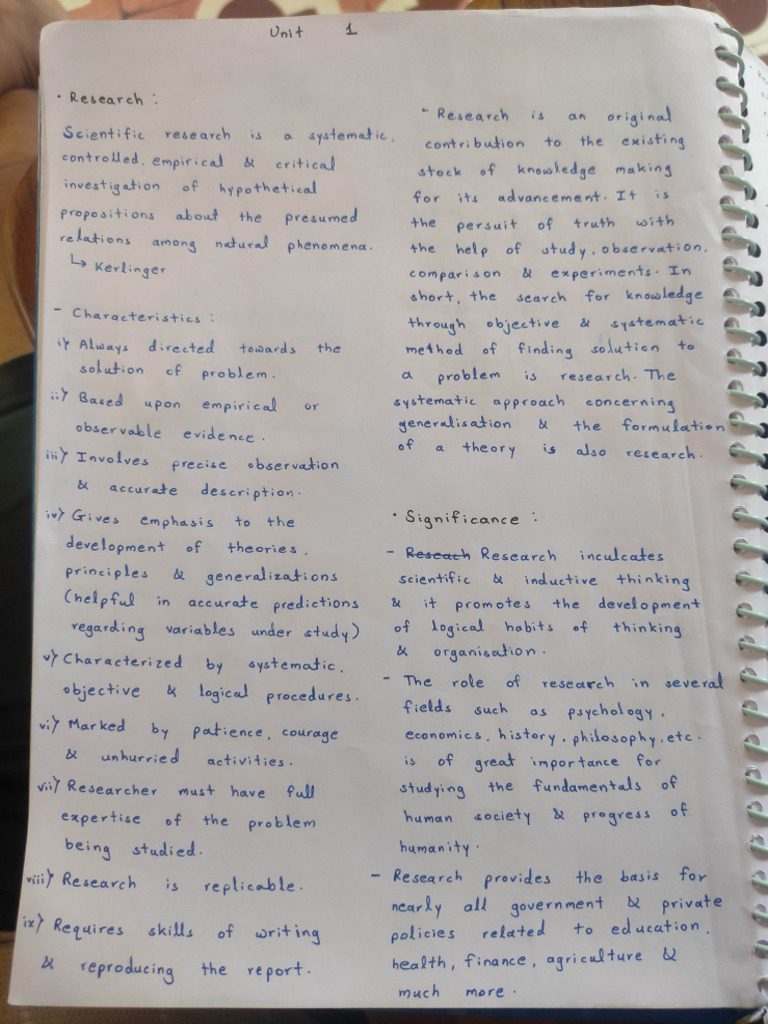 Unit 1
• Research :
Scientific research is a systematic,
controlled, empirical & critical
investigation of hypothetical
propositions about the presumed
relations among natural phenomena.
↳ Kerlinger
- Characteristics :
i) Always directed towards the
solution of problem.
ii) Based upon empirical or
observable evidence.
iii) Involves precise observation
& accurate description.
iv) Gives emphasis to the
development of theories,
principles & generalizations
(helpful in accurate predictions
regarding variables under study)
v) Characterized by systematic,
objective & logical procedures.
vi) Marked by patience, courage
& unhurried activities.
vii) Researcher must have full
expertise of the problem
being studied.
viii) Research is replicable.
ix) Requires skills of writing
& reproducing the report.
- Research is an original
contribution to the existing
stock of knowledge making
for its advancement. It is
the persuit of truth with
the help of study, observation,
comparison & experiments. In
short, the search for knowledge
through objective & systematic
method of finding solution to
a problem is research. The
systematic approach concerning
generalisation & the formulation
of a theory is also research.
• Significance :
- Reseach Research inculcates
scientific & inductive thinking
& it promotes the development
of logical habits of thinking
& organisation.
- The role of research in several
fields such as psychology,
economics, history, philosophy, etc.
is of great importance for
studying the fundamentals of
human society & progress of
humanity.
- Research provides the basis for
nearly all government & private
policies related to education,
health, finance, agriculture &
much more.